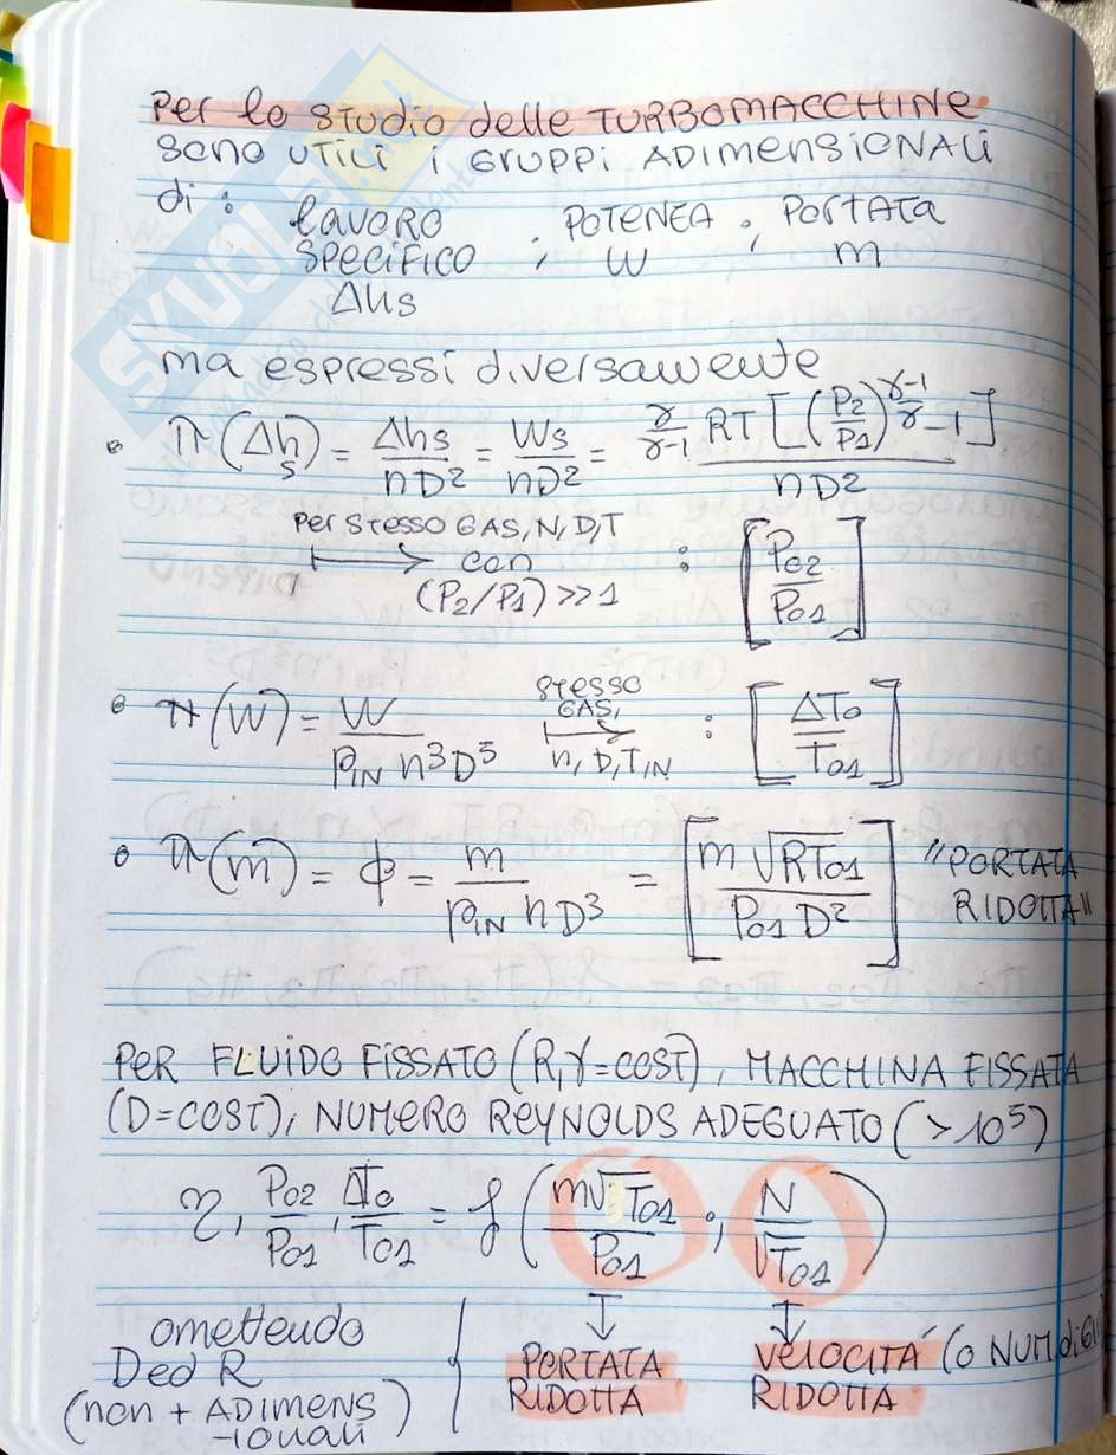 Per lo STUDIO delle TURBOMACCHINE
SONO UTILI I GRUPPI ADIMENSIONALI
di : lavoro SPECIFICO Δhs ; POTENZA W ; PORTATA m
ma espressi diversamente
• π(Δhs) = Δhs / nD² = Ws / nD² = γ/(γ-1) RT [(P2/P1)^((γ-1)/γ) - 1] / nD²
Per stesso GAS, N, D, T
↦ con : [P02/P01]
(P2/P1) >> 1
• π(W) = W / ρIN n³D⁵ ↦ stesso GAS, n, D, TIN : [ΔT0/T01]
• π(m) = ϕ = m / ρIN nD³ = [m √RT01 / P01 D²] "PORTATA RIDOTTA"
PER FLUIDO FISSATO (R, γ = COST), MACCHINA FISSATA
(D = COST), NUMERO REYNOLDS ADEGUATO ( > 10⁵)
η, P02/P01, ΔT0/T01 = f (m√T01 / P01 ; N / √T01)
omettendo D ed R (non + ADIMENS-ionali) { ↓ PORTATA RIDOTTA ↓ VELOCITÀ (O NUM di RIDOTTA
SKUOLA